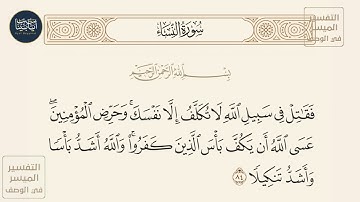 التفسير
الميسر
في الوصف
سُورَةُ النِّسَاءِ
بِسْمِ اللَّهِ الرَّحْمَٰنِ الرَّحِيمِ
فَقَٰتِلْ فِي سَبِيلِ اللَّهِ لَا تُكَلَّفُ إِلَّا نَفْسَكَ ۚ وَحَرِّضِ الْمُؤْمِنِينَ ۖ
عَسَى اللَّهُ أَن يَكُفَّ بَأْسَ الَّذِينَ كَفَرُوا ۚ وَاللَّهُ أَشَدُّ بَأْسًا
وَأَشَدُّ تَنكِيلًا ٨٤
التفسير
الميسر
في الوصف